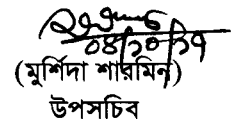 ০৪/১০/১৭
(মুর্শিদা শারমিন)
উপসচিব